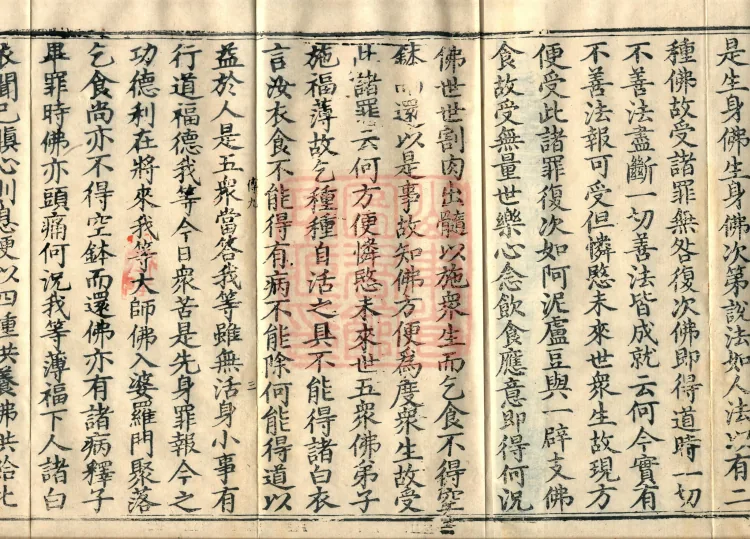 是生身佛生身佛次第說法如人法以有二
種佛故受諸罪無咎復次佛即得道時一切
不善法盡斷一切善法皆成就云何今實有
不善法報可受但憐愍未來世衆生故現方
便受此諸罪復次如阿泥盧豆與一辟支佛
食故受無量世樂心念飲食應意即得何況
佛世世割肉出髓以施衆生而乞食不得空
鉢還以是事故知佛方便爲度衆生故受
此諸罪云何方便憐愍未來世五衆佛弟子
施福薄故乞種種自活之具不能得諸白衣
言汝衣食不能得有病不能除何能得道以
益於人是五衆當答我等雖無活身小事有
三
行道福德我等今日衆苦是先身罪報今之
功德利在將來我等大師佛入婆羅門聚落
乞食尚亦不得空鉢而還佛亦有諸病釋子
畢罪時佛亦頭痛何況我等薄福下人諸白
衣聞已瞋心則息便以四種供養佛供給比